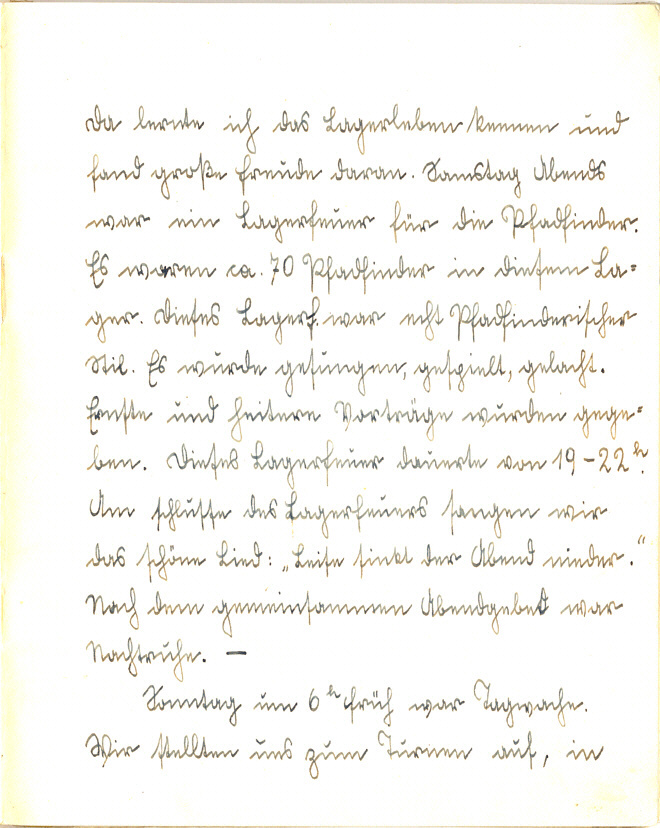 Da lernte ich das Lagerleben kennen und
fand große Freude daran. Samstag Abends
war ein Lagerfeuer für die Pfadfinder.
Es waren ca. 70 Pfadfinder in diesem La=
ger. Dieses Lagerf. war echt Pfadfinderischer
Stil. Es wurde gesungen, gespielt, gelacht.
Ernste und heitere Vorträge wurden gege=
ben. Dieses Lagerfeuer dauerte von 19-22 h.
Am schlusse des Lagerfeuers sangen wir
das schöne Lied: „Leise sinkt der Abend nieder.“
Nach dem gemeinsammen Abendgebet war
Nachtruhe. —
Sonntag um 6 h früh war Tagwache.
Wir stellten uns zum Turnen auf, in